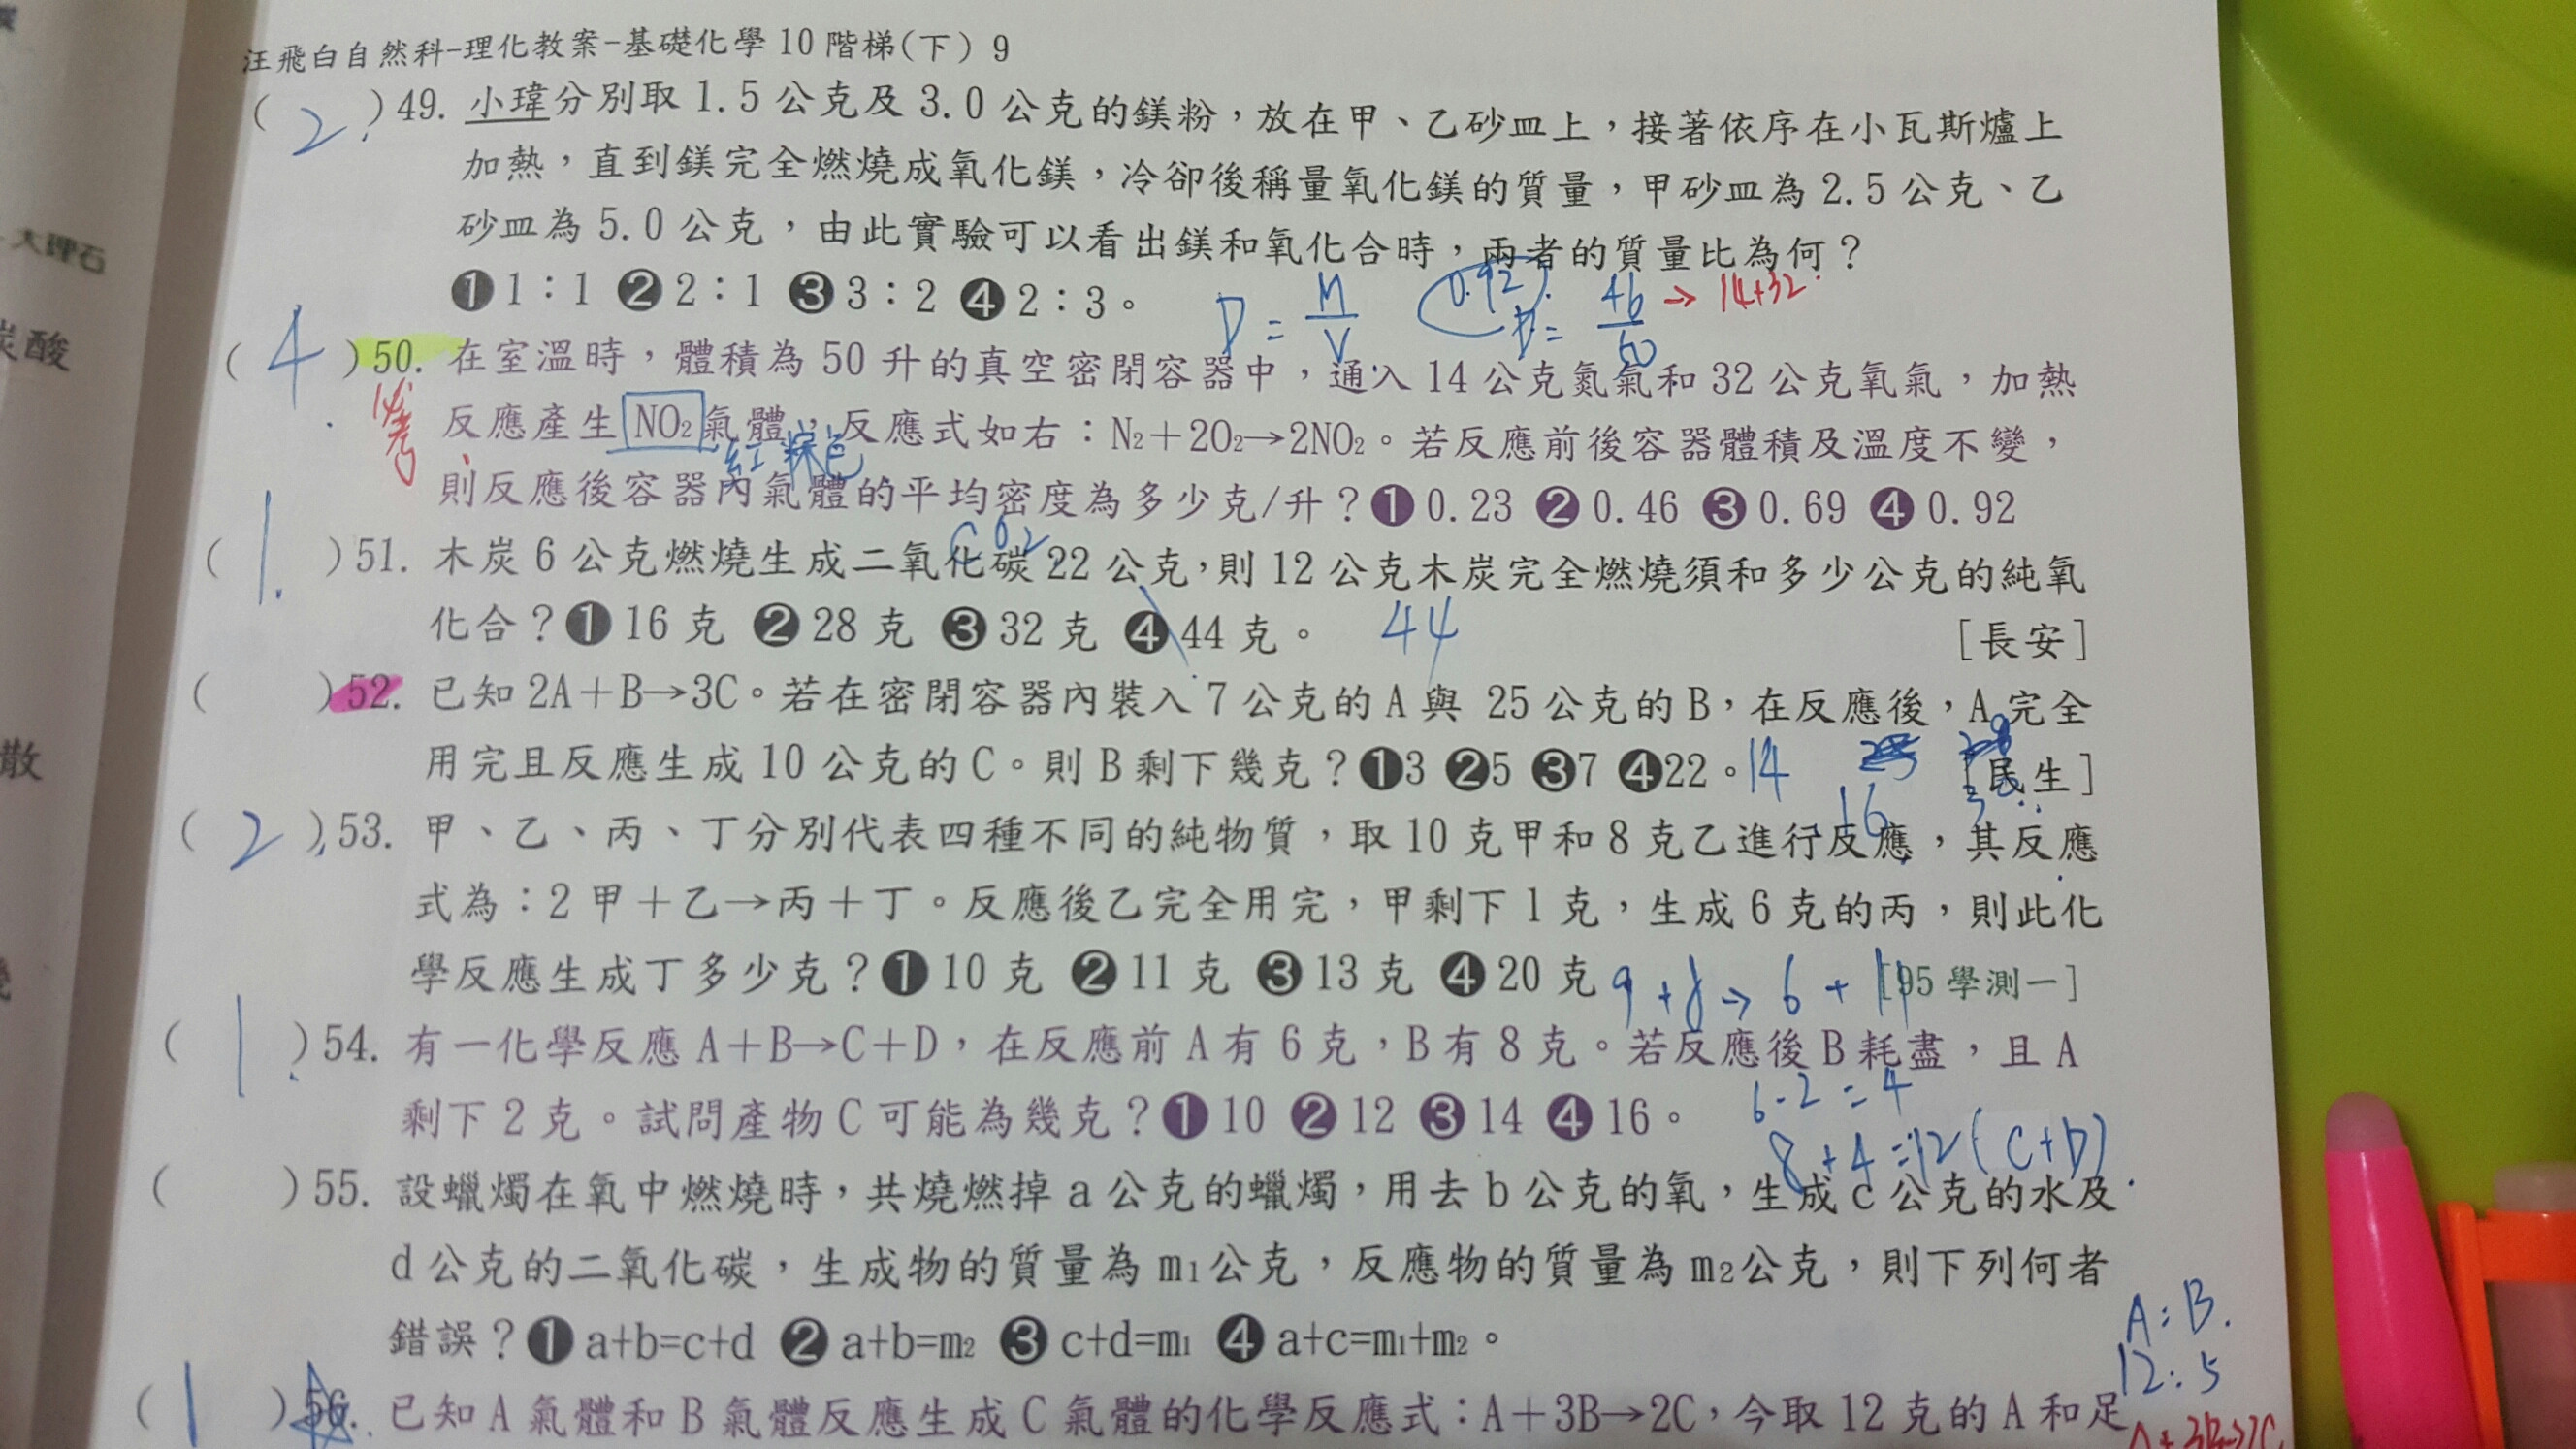 汪飛白自然科-理化教案-基礎化學10階梯(下) 9
( 2 )49. 小瑋分別取1.5公克及3.0公克的鎂粉，放在甲、乙砂皿上，接著依序在小瓦斯爐上
加熱，直到鎂完全燃燒成氧化鎂，冷卻後稱量氧化鎂的質量，甲砂皿為2.5公克、乙
砂皿為5.0公克，由此實驗可以看出鎂和氧化合時，兩者的質量比為何？
❶1：1 ❷2：1 ❸3：2 ❹2：3。
D = M/V 0.92 D = 46/50 → 14+32
( 4 )50. 在室溫時，體積為50升的真空密閉容器中，通入14公克氮氣和32公克氧氣，加熱
反應產生NO₂氣體，反應式如右：N₂＋2O₂→2NO₂。若反應前後容器體積及溫度不變，
紅棕色
則反應後容器內氣體的平均密度為多少克/升？❶0.23 ❷0.46 ❸0.69 ❹0.92
CO₂
( 1 )51. 木炭6公克燃燒生成二氧化碳22公克，則12公克木炭完全燃燒須和多少公克的純氧
化合？❶16克 ❷28克 ❸32克 ❹44克。 44 [長安]
( )52. 已知2A＋B→3C。若在密閉容器內裝入7公克的A與 25公克的B，在反應後，A完全
用完且反應生成10公克的C。則B剩下幾克？❶3 ❷5 ❸7 ❹22。14 [民生]
16
( 2 )53. 甲、乙、丙、丁分別代表四種不同的純物質，取10克甲和8克乙進行反應，其反應
式為：2甲＋乙→丙＋丁。反應後乙完全用完，甲剩下1克，生成6克的丙，則此化
學反應生成丁多少克？❶10克 ❷11克 ❸13克 ❹20克 [95學測一]
9+8→6+11
( 1 )54. 有一化學反應A＋B→C＋D，在反應前A有6克，B有8克。若反應後B耗盡，且A
6-2=4
剩下2克。試問產物C可能為幾克？❶10 ❷12 ❸14 ❹16。
8+4=12(C+D)
( )55. 設蠟燭在氧中燃燒時，共燒燃掉a公克的蠟燭，用去b公克的氧，生成c公克的水及
d公克的二氧化碳，生成物的質量為m₁公克，反應物的質量為m₂公克，則下列何者
錯誤？❶a+b=c+d ❷a+b=m₂ ❸c+d=m₁ ❹a+c=m₁+m₂。
A：B
12：5
( 1 )56. 已知A氣體和B氣體反應生成C氣體的化學反應式：A＋3B→2C，今取12克的A和足
A+3B→2C
大理石
炭酸
散